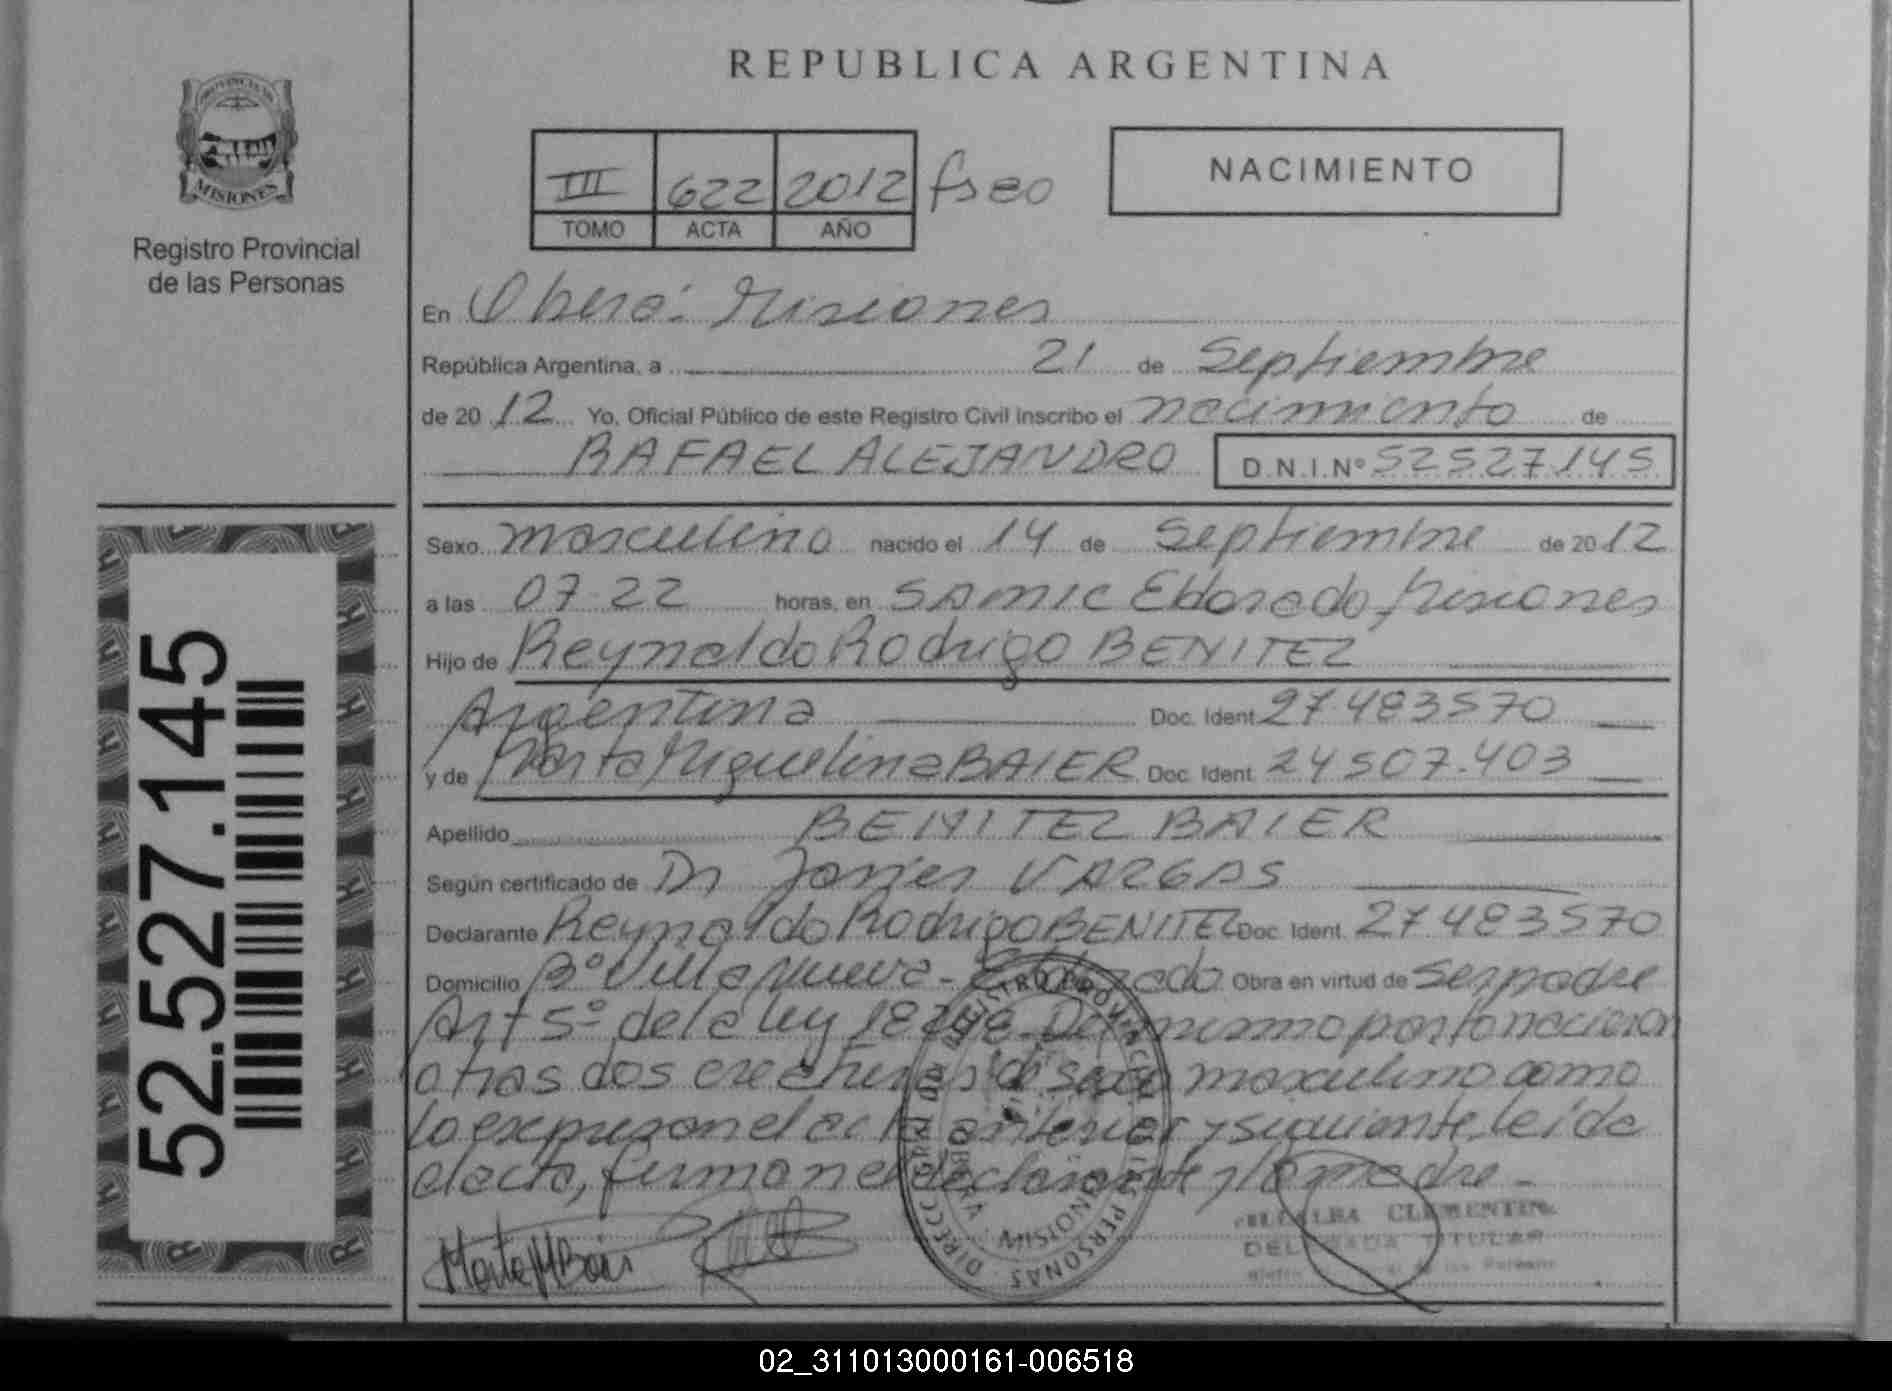 REPUBLICA ARGENTINA
PROVINCIA DE
MISIONES
Registro Provincial
de las Personas
III 622 2012 fseo
TOMO ACTA AÑO
NACIMIENTO
En Oberá: Misiones
República Argentina, a 21 de Septiembre
de 2012 Yo, Oficial Público de este Registro Civil inscribo el nacimiento de
RAFAEL ALEJANDRO D.N.I.Nº 52527145
52.527.145
Sexo masculino nacido el 14 de Septiembre de 2012
a las 07.22 horas, en SAMIC Eldorado, Misiones
Hijo de Reynaldo Rodrigo BENITEZ
Argentina Doc. Ident 27483570
y de Marta Miguelina BAIER Doc. Ident 24507.403
Apellido BENITEZ BAIER
Según certificado de Dr Javier VARGAS
Declarante Reynaldo Rodrigo BENITEZ Doc. Ident. 27483570
Domicilio Bº Villa Nueva - Eldorado Obra en virtud de Ser padre
Art 5º de la ley 18248 - Del mismo parto nacieron
otras dos creaturas de sexo masculino como
lo expresan el acta anterior y siguiente, leída
el acta, firman el declarante y la madre -
Marta M Baier
DIRECC GRAL DEL REGISTRO PROVINCIAL DE LAS PERSONAS
OBERA
MISIONES
CLEMENTINA
DELEGADA TITULAR
02_311013000161-006518